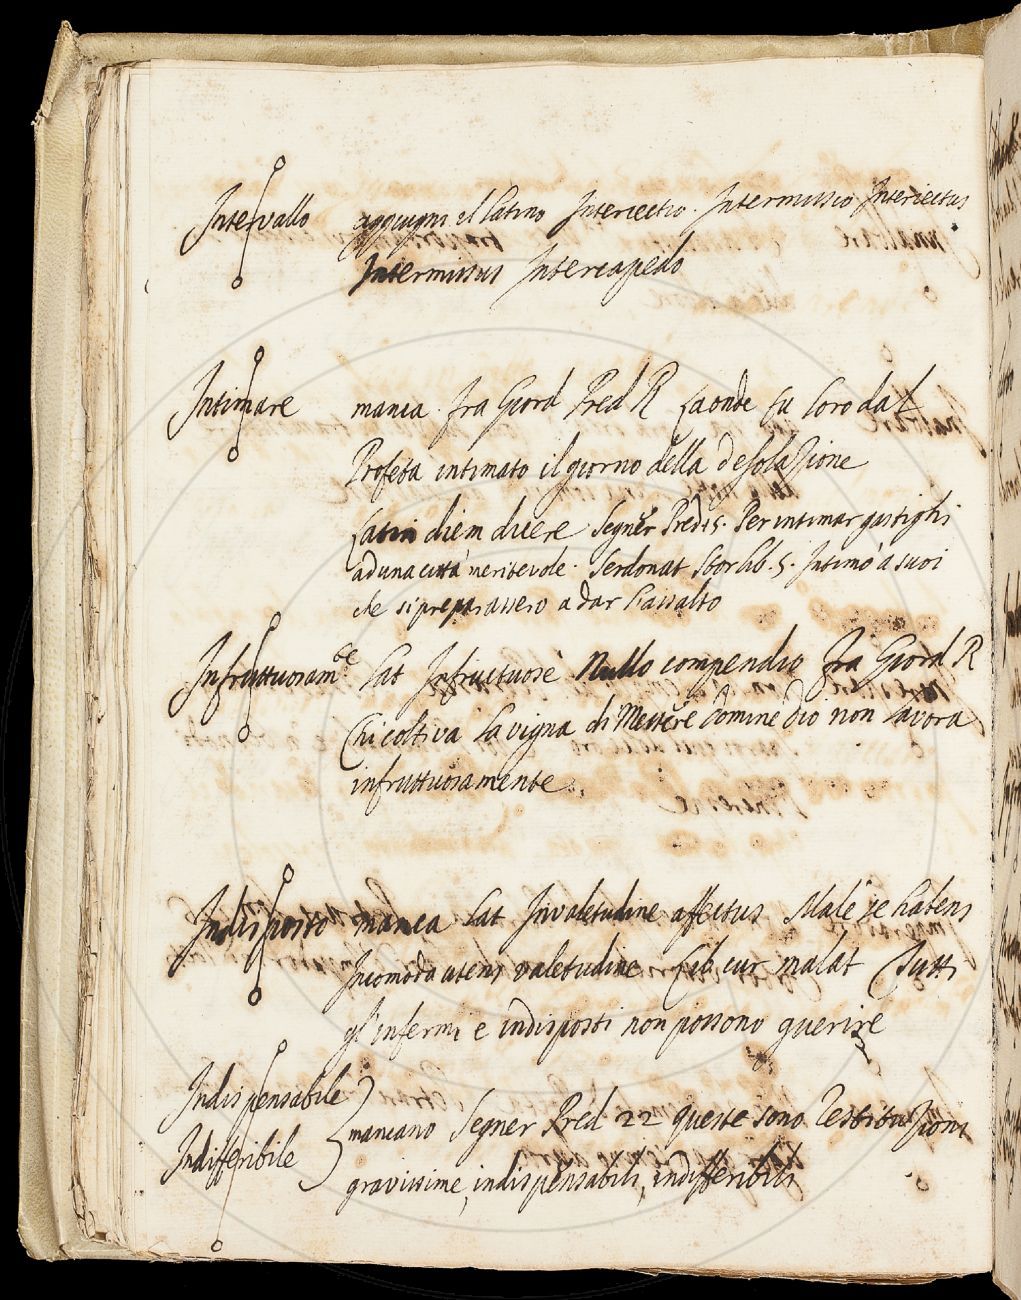 Intervallo aggiugni il latino Interiectio. Intermissio Interiectus
Intermissus Intercapedo
Intimare manca. fra Giord Pred R Laonde fu loro dal
Profeta intimato il giorno della desolazione
Latin diem dicere Segner Pred 15. Per intimar gastighi
ad una città meritevole. Serdonat Stor lib. 5. Intimò a suoi
che si preparassero a dar l'assalto
Infruttuosam.te Lat Infructuose Nullo compendio fra Giord R
Chi coltiva la vigna di Messere Domine Dio non lavora
infruttuosamente.
Indisposto manca Lat Invaletudine affectus Male se habens
Incomoda utens valetudine Lib cur malat Tutti
gl'infermi e indisposti non possono guerire
Indispensabile
Indifferibile mancano Segner Pred 22 queste sono restituzioni
gravissime, indispensabili, indifferibili